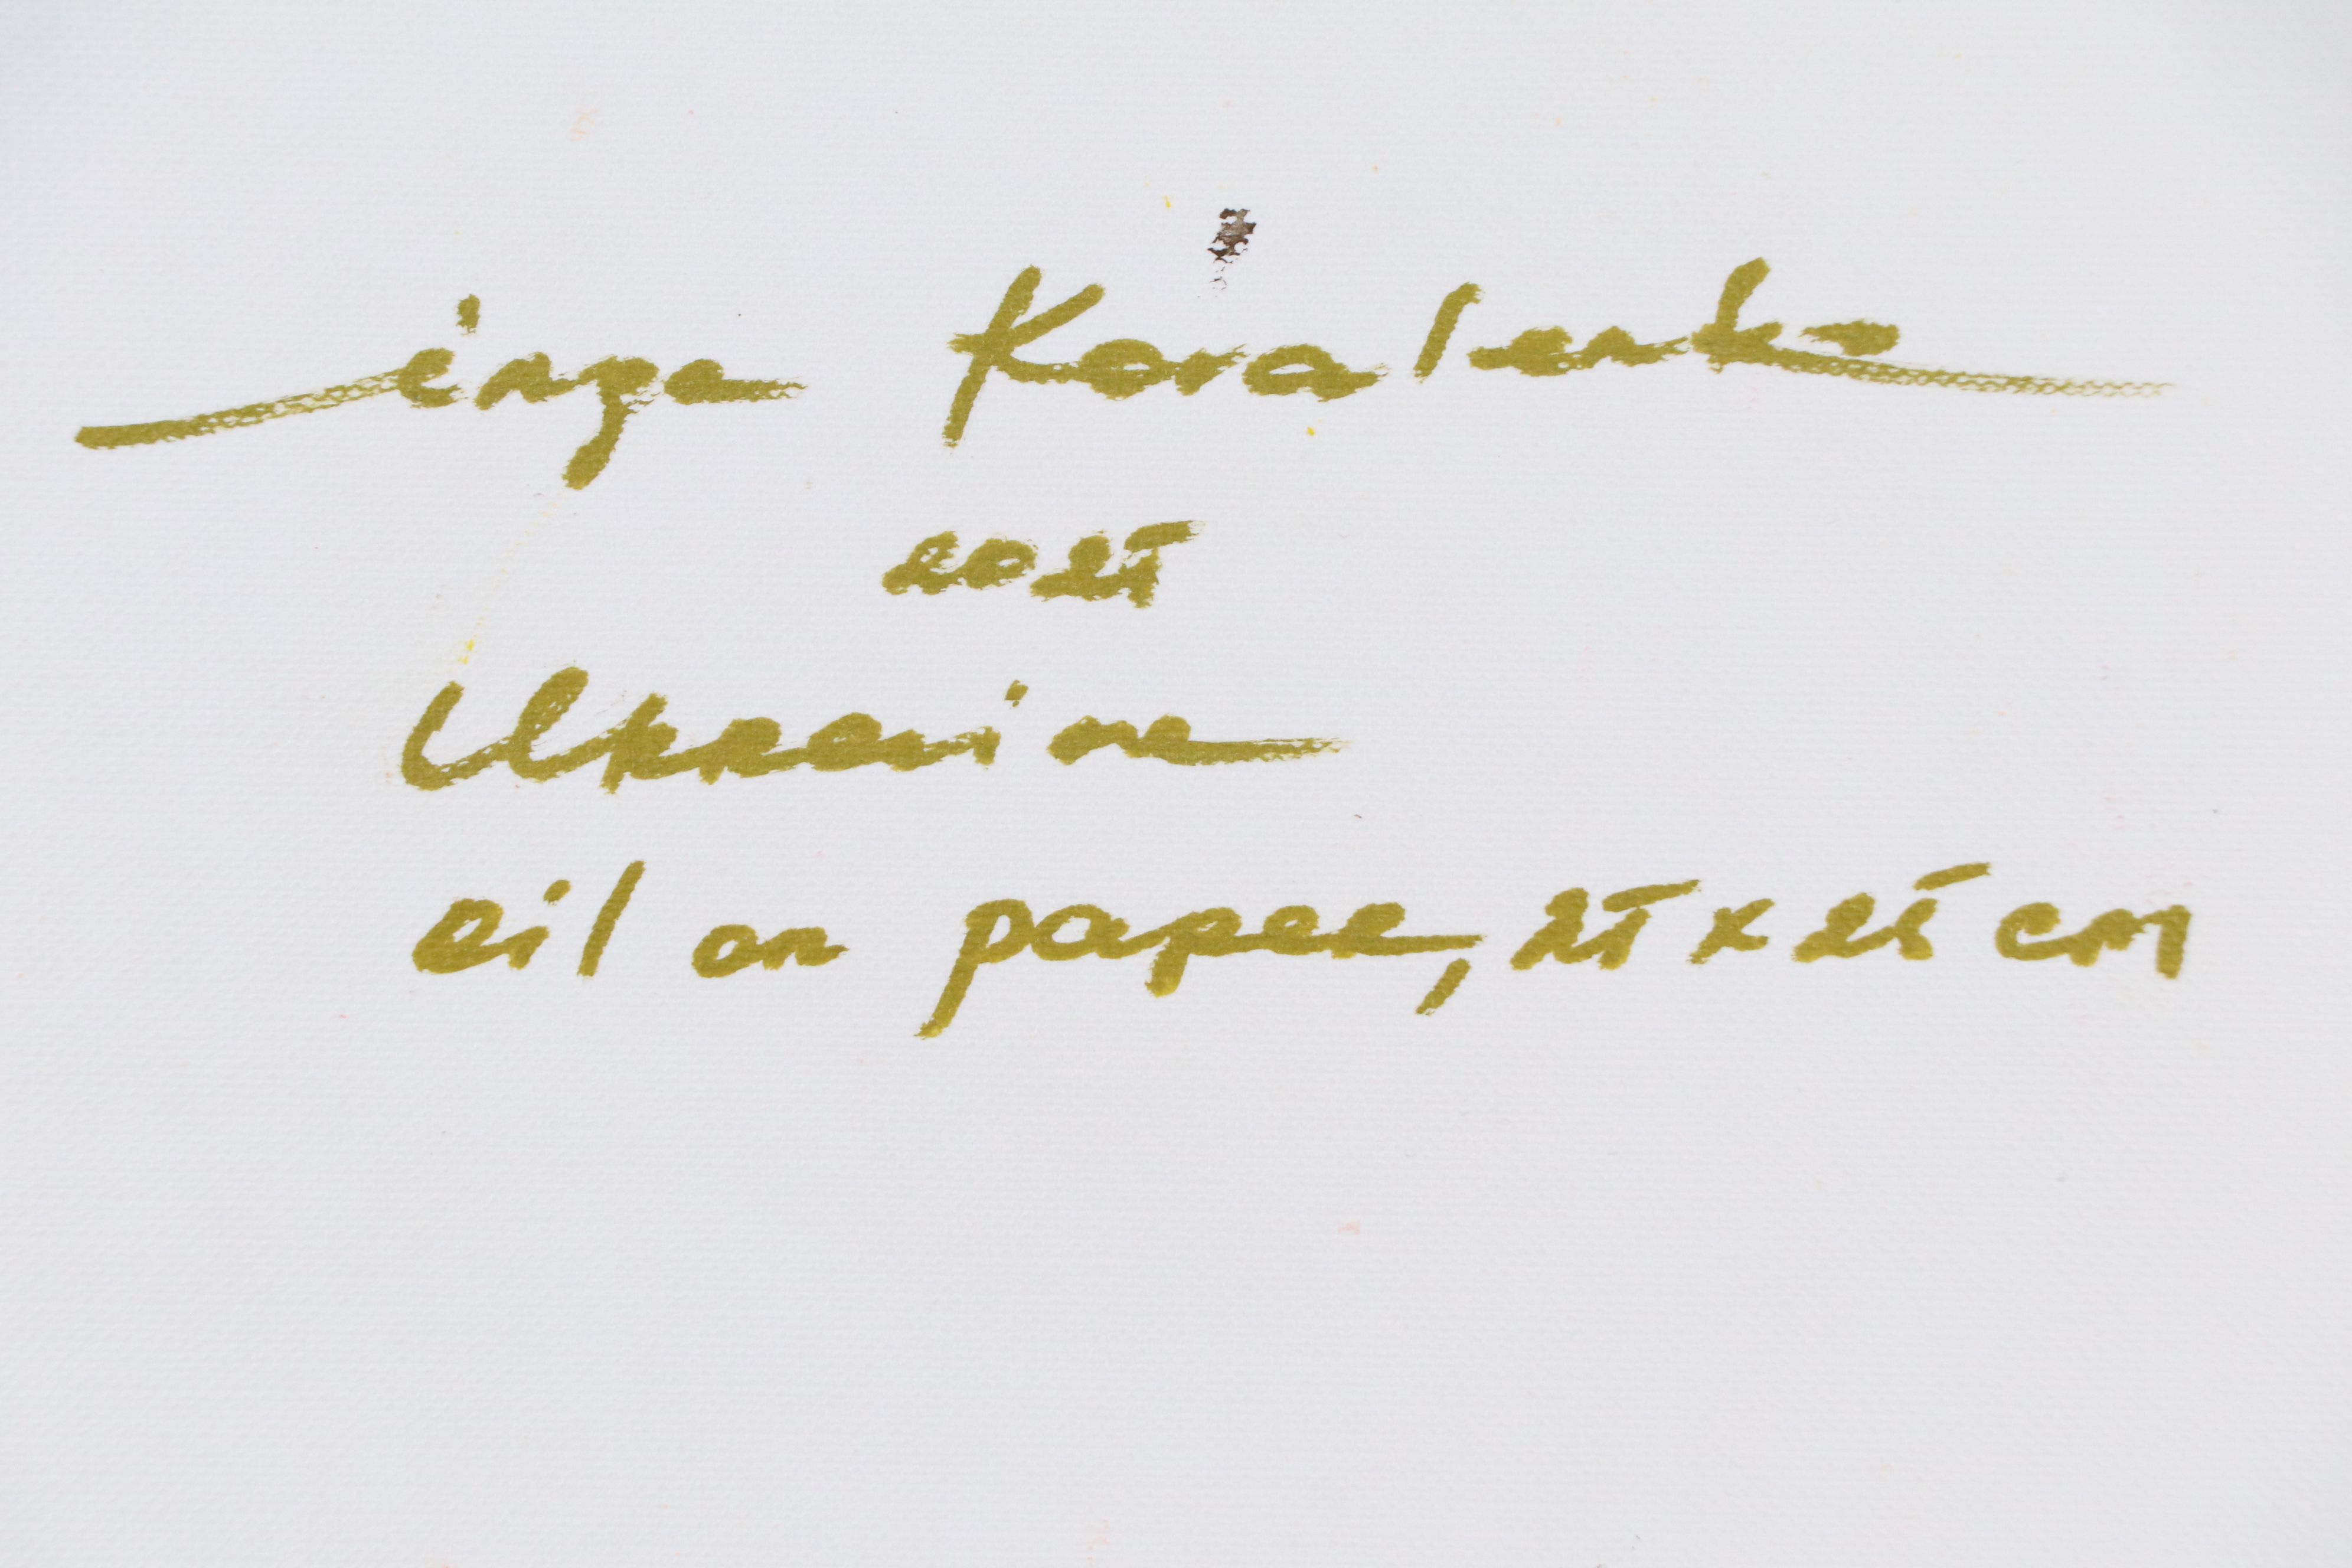 inga Kovalenko
2025
Ukraine
oil on paper, 25 x 25 cm